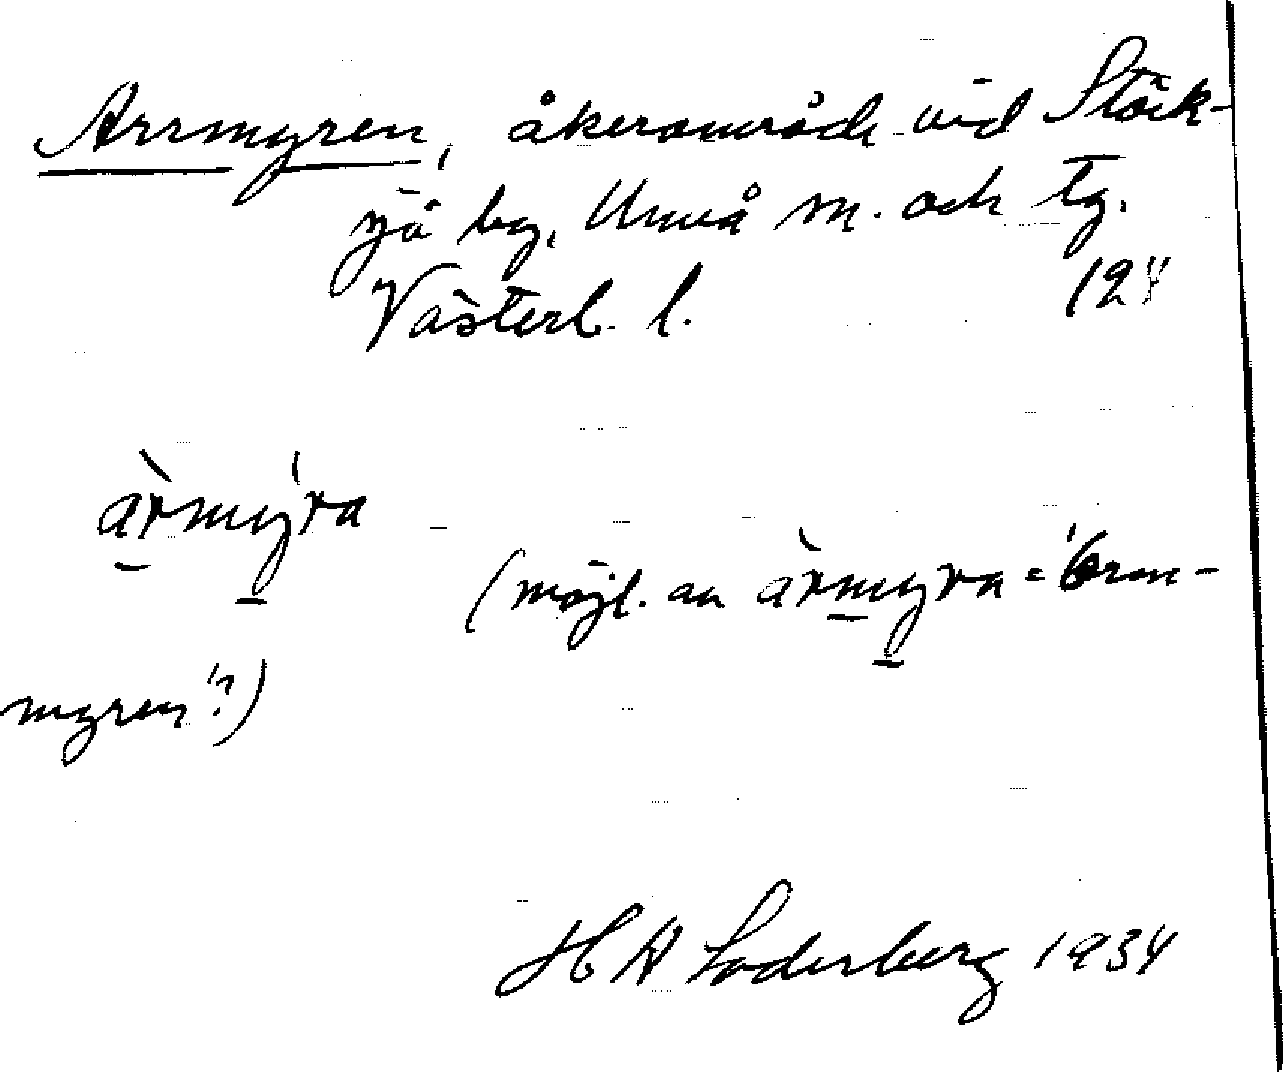 Arrmyren, åkerområde vid Stöck-
sjö by, Umeå sn. och tg.
Västerb. l. 124
àrmýra
(möjl. an àrmyra = 'Orm-
myren'?)
H A Söderberg 1934